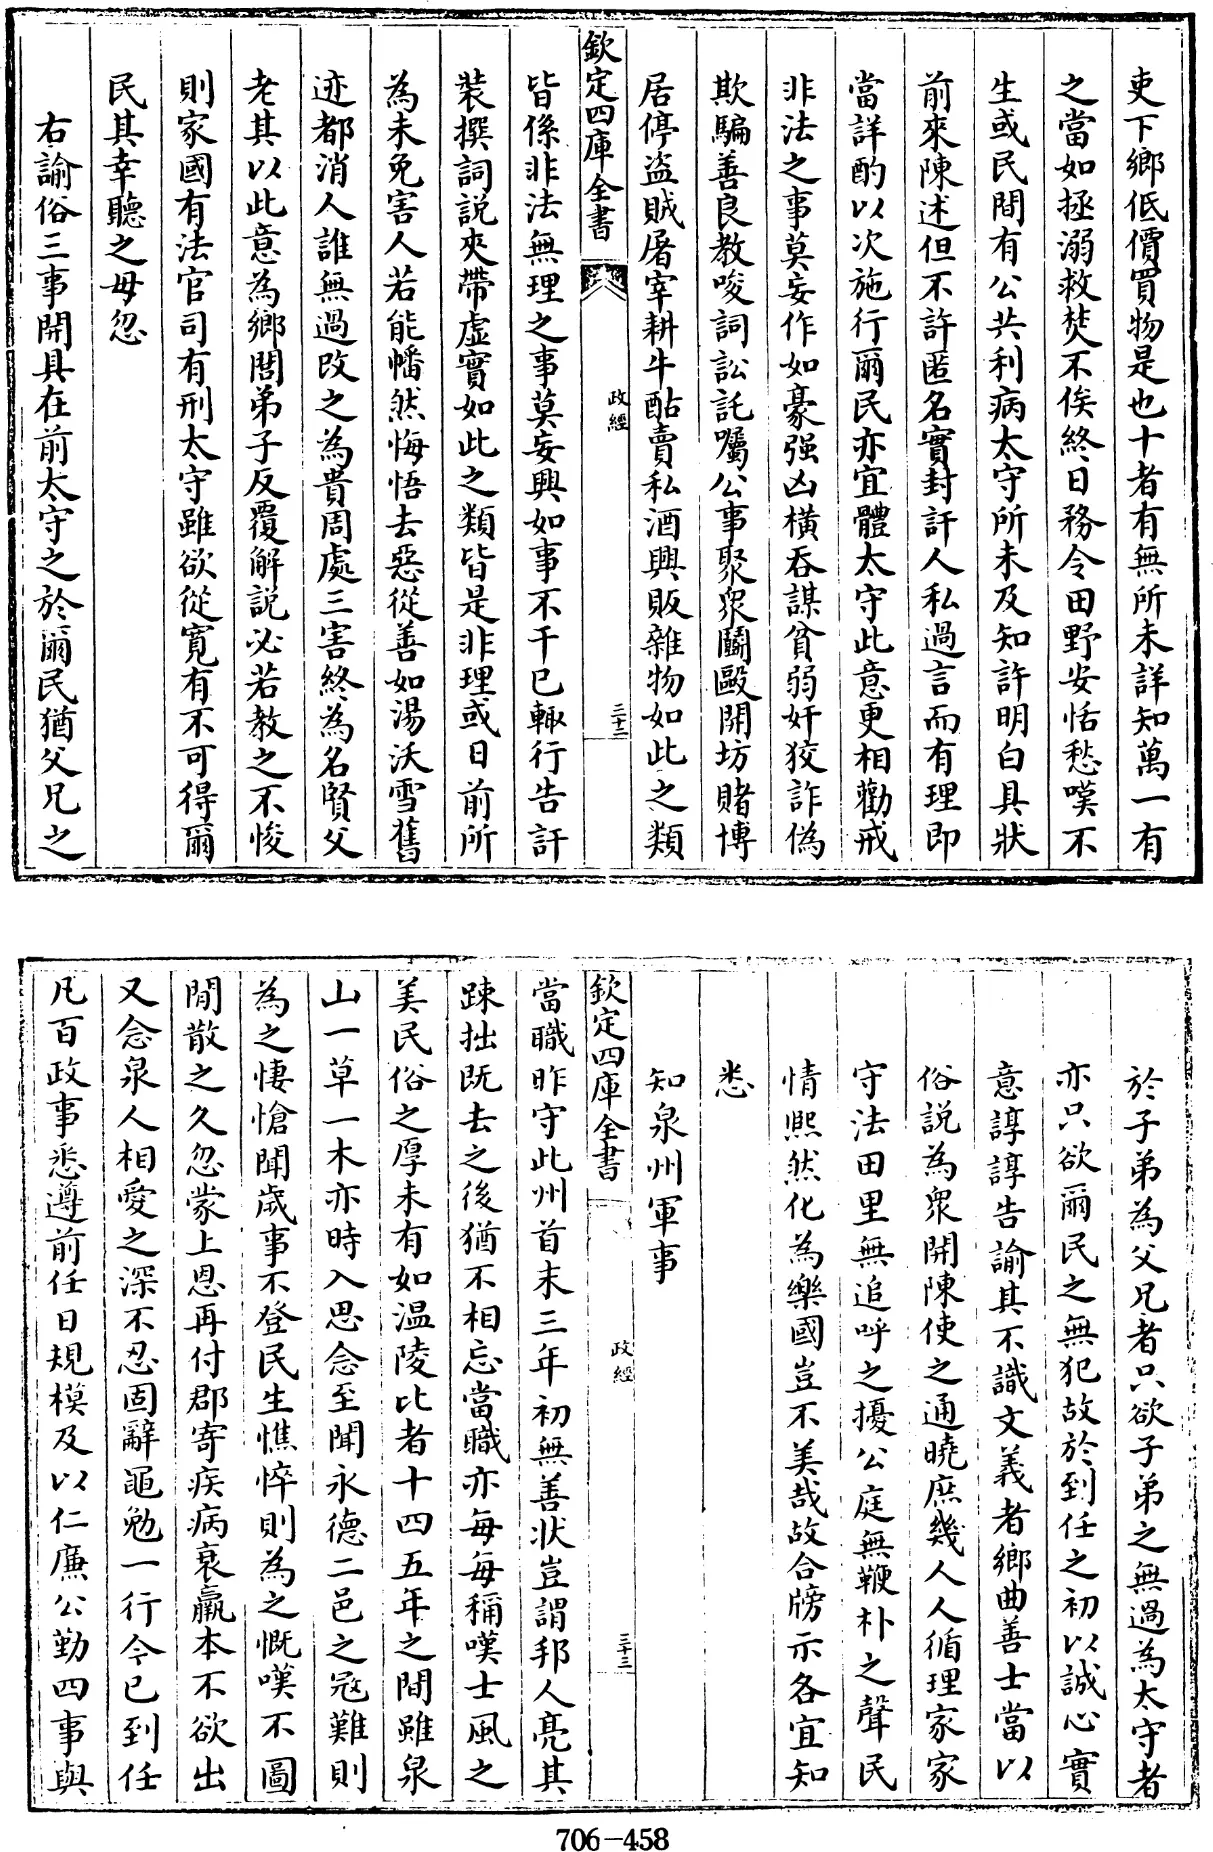 吏下鄉低價買物是也十者有無所未詳知萬一有
之當如拯溺救焚不俟終日務令田野安恬愁嘆不
生或民間有公共利病太守所未及知許明白具狀
前來陳述但不許匿名實封訐人私過言而有理即
當詳酌以次施行爾民亦宜體太守此意更相勸戒
非法之事莫妄作如豪强凶橫吞謀貧弱奸狡詐偽
欺騙善良教唆詞訟託囑公事聚衆鬭毆開坊賭博
居停盗賊屠宰耕牛酤賣私酒興販雜物如此之類
欽定四庫全書
政經
三十二
皆係非法無理之事莫妄興如事不干已輙行告訐
裝撰詞說夾帶虛實如此之類皆是非理或日前所
為未免害人若能幡然悔悟去惡從善如湯沃雪舊
迹都消人誰無過改之為貴周處三害終為名賢父
老其以此意為鄉閭弟子反覆解說必若教之不悛
則家國有法官司有刑太守雖欲從寛有不可得爾
民其幸聽之毋忽
右諭俗三事開具在前太守之於爾民猶父兄之
於子弟為父兄者只欲子弟之無過為太守者
亦只欲爾民之無犯故於到任之初以誠心實
意諄諄告諭其不識文義者鄉曲善士當以
俗說為衆開陳使之通曉庶幾人人循理家家
守法田里無追呼之擾公庭無鞭朴之聲民
情熙然化為樂國豈不美哉故合牓示各宜知
悉
知泉州軍事
欽定四庫全書
政經
三十三
當職昨守此州首末三年初無善狀豈謂邦人亮其
踈拙既去之後猶不相忘當職亦每每稱嘆士風之
美民俗之厚未有如温陵比者十四五年之間雖泉
山一草一木亦時入思念至聞永德二邑之冦難則
為之悽愴聞歳事不登民生憔悴則為之慨嘆不圖
閒散之久忽蒙上恩再付郡寄疾病衰羸本不欲出
又念泉人相愛之深不忍固辭黽勉一行今已到任
凡百政事悉遵前任日規模及以仁廉公勤四事與
706-458